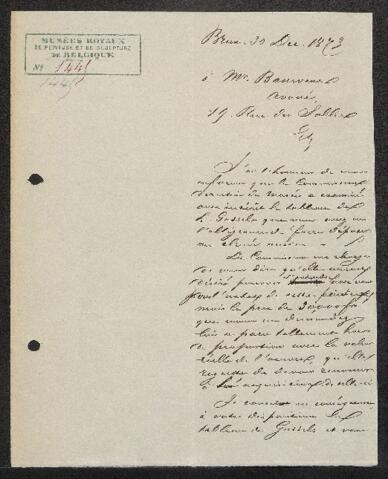 MUSÉES ROYAUX
DE PEINTURE ET DE SCULPTURE
DE BELGIQUE
N° 1445
1445
Brux. 30 Dec. 1873
à Mr. Bauwens
avoué
19, Rue des Sablons
J'ai l'honneur de vous
informer que la Commission
directrice du musée a examiné
avec intérêt le tableau de
L. Gossels que vous avez eu
l'obligeance de faire déposer
au
La Commission me charge
de vous dire qu'elle aurait
désiré pouvoir s'entendre avec vous
pour l'achat de cette peinture
mais le prix de
que vous en demandez
lui a paru tellement hors
de proportion avec la valeur
réelle de l'œuvre, qu'elle
regrette de devoir renoncer
à acquisition de celle-ci
Je en conséquence
à votre disposition le
tableau de Gossels et vous